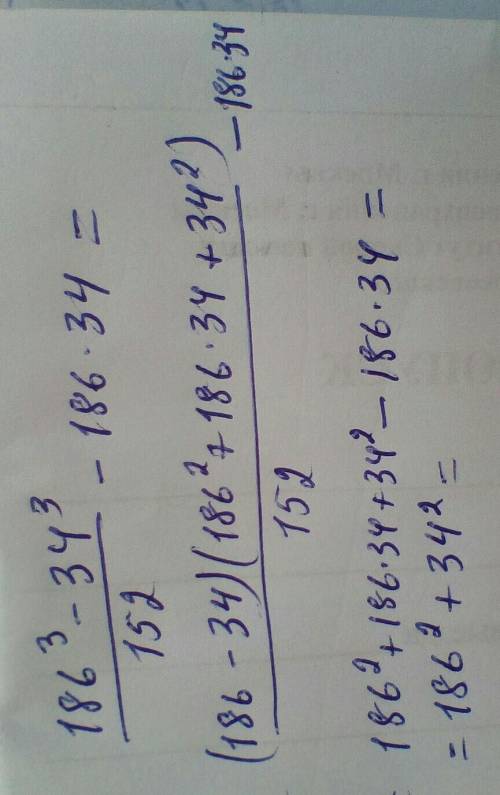 186³ - 34³ / 152 - 186·34 =
(186 - 34)(186² + 186·34 + 34²) / 152 - 186·34
186² + 186·34 + 34² - 186·34 =
= 186² + 34² =